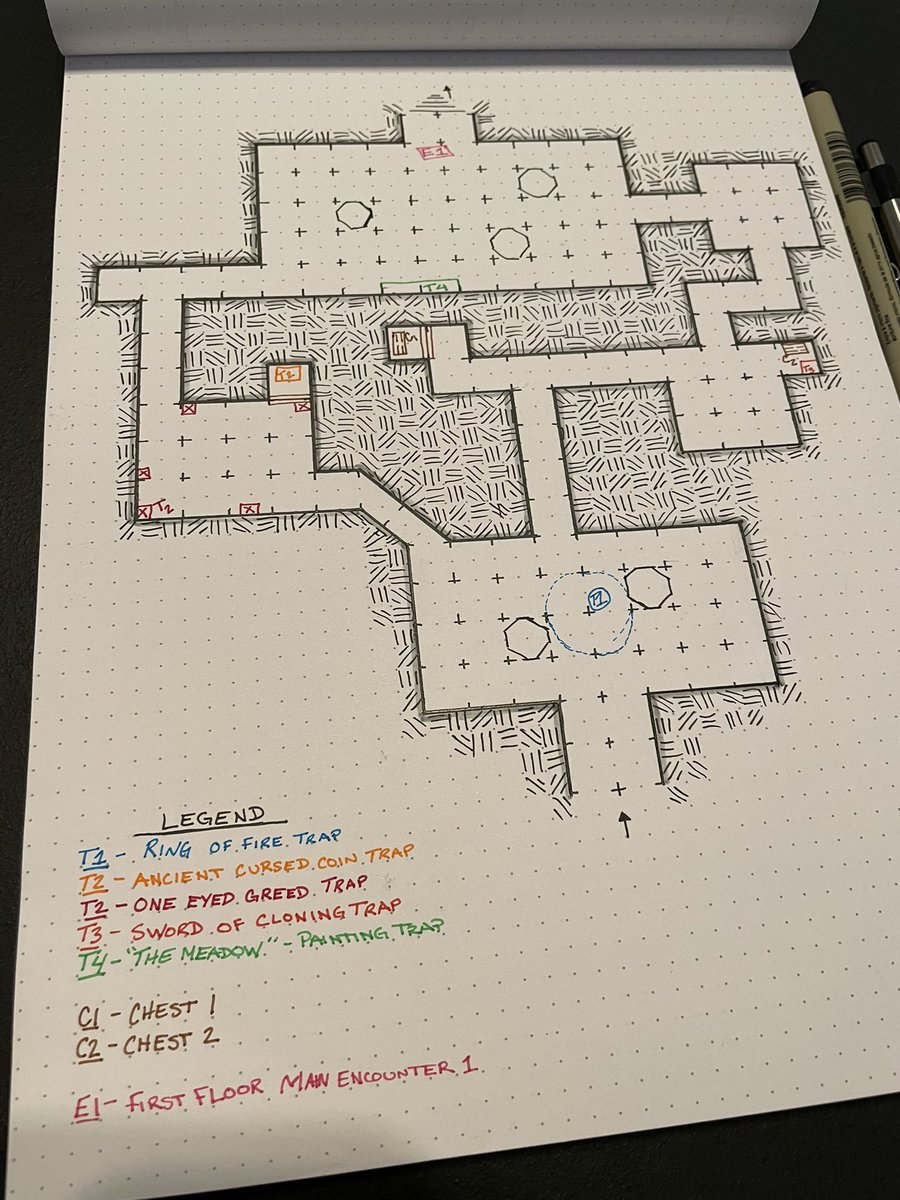 E1
T4
C1
T2
C2
T3
T2
T1
LEGEND
T1 - RING OF FIRE TRAP
T2 - ANCIENT CURSED COIN TRAP
T2 - ONE EYED GREED TRAP
T3 - SWORD OF CLONING TRAP
T4 - "THE MEADOW" - PAINTING TRAP
C1 - CHEST 1
C2 - CHEST 2
E1 - FIRST FLOOR MAIN ENCOUNTER 1